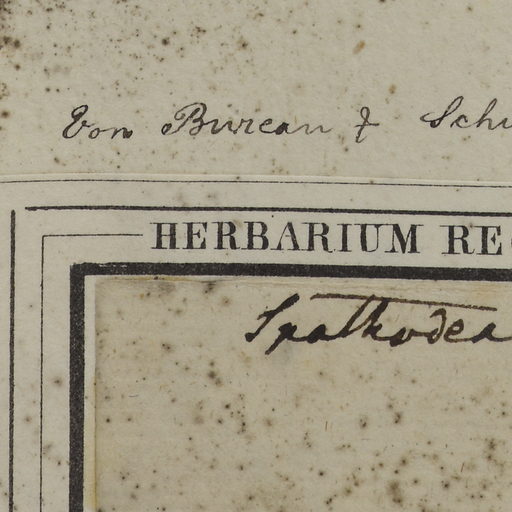 Von Bureau & Schu
HERBARIUM REG
Spathodea